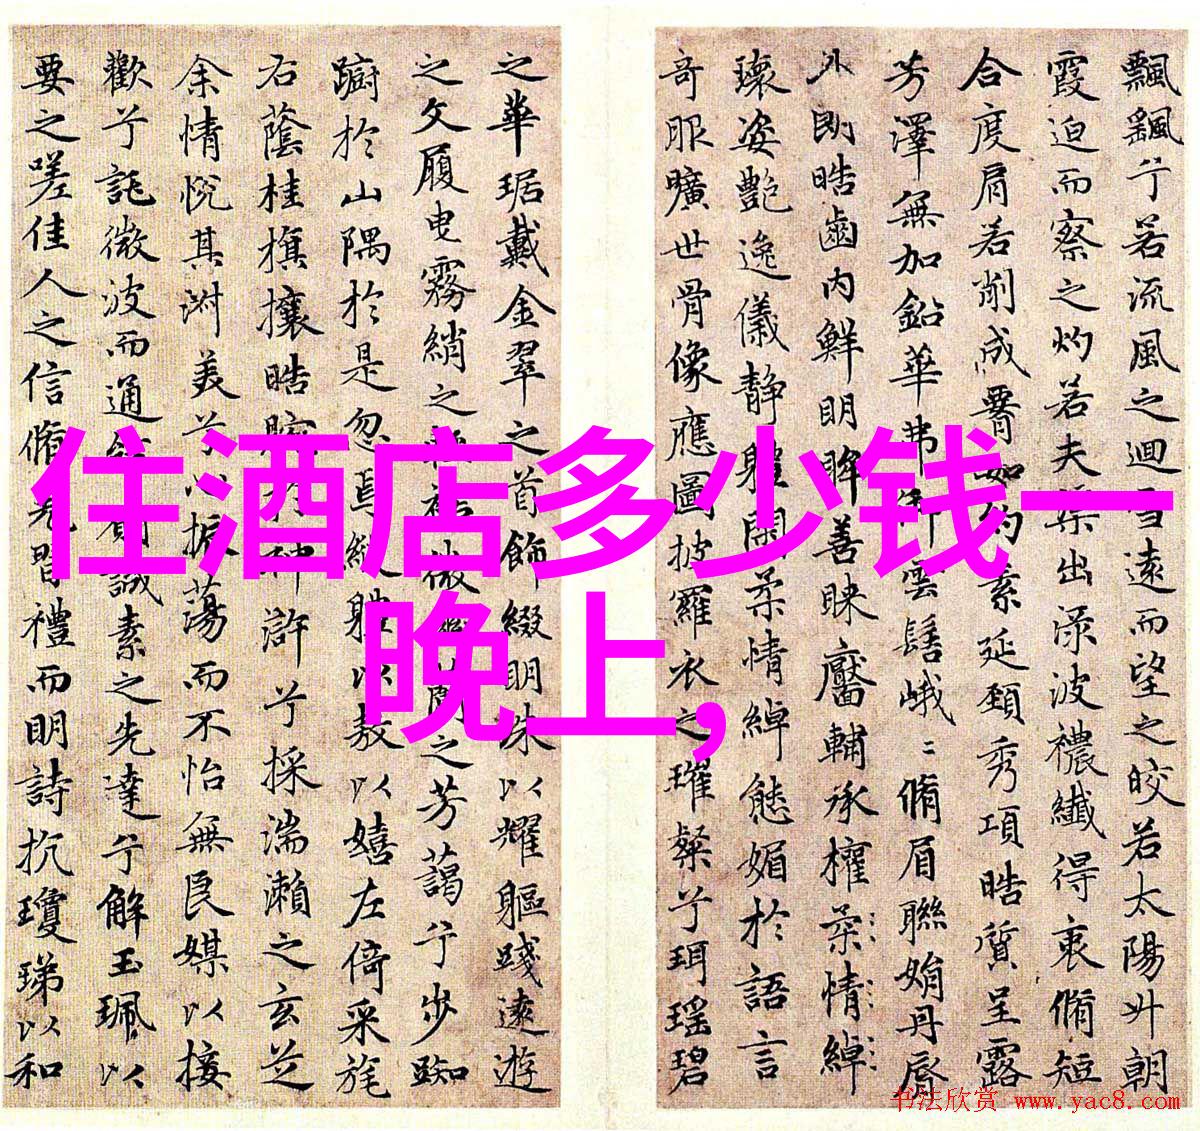 飄飖兮若流風之迴雪遠而望之皎若太陽升朝
霞迫而察之灼若夫渠出淥波穠纖得衷脩短
合度肩若削成如約素延頸秀項皓質呈露
芳澤無加鉛華弗御雲髻峨〻脩眉聯娟丹脣
外朗皓齒内鮮明眸善睞靨輔承權柔情綽
瓌姿艷逸儀靜體閑柔情綽態媚於語言
奇服曠世骨像應圖披羅衣之璀粲兮珥瑤碧
之華琚戴金翠之首飾綴明珠以耀軀踐遠遊
之文履曳霧綃之輕裾微幽蘭之芳藹兮步踟
躕於山隅於是忽焉縱體以敖以嬉左倚采旄
右蔭桂旗攘皓腕於神滸兮採湍瀨之玄芝
余情悅其淑美兮心振蕩而不怡無良媒以接
歡兮託微波而通誠素之先達兮解玉珮以
要之嗟佳人之信脩羌習禮而明詩抗瓊珶以和
住酒店多少钱一
晚上,
书法欣赏 www.yac8.com